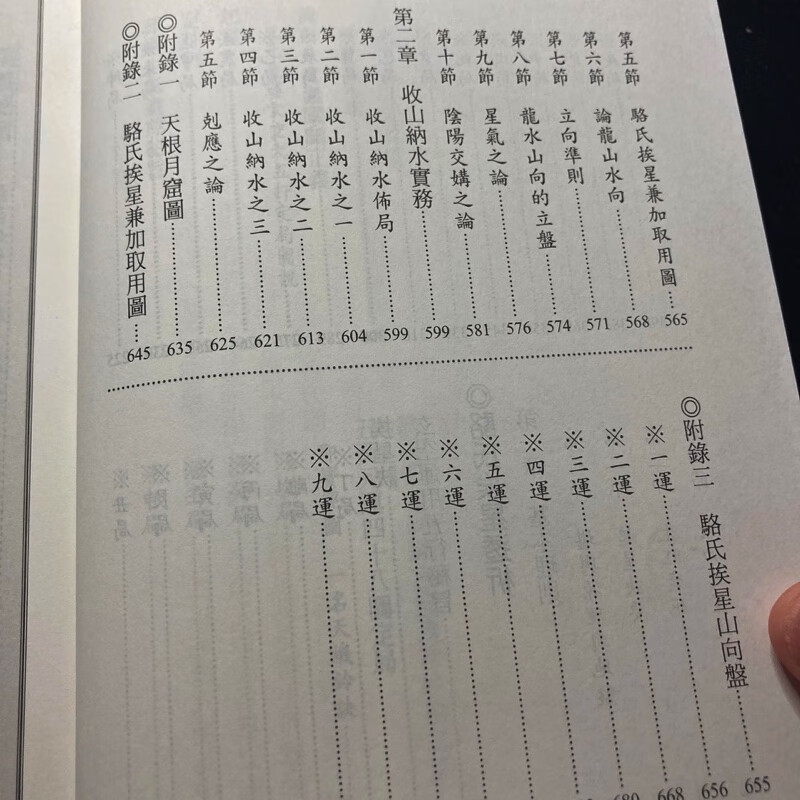 第五節 駱氏挨星兼加取用圖……565
第六節 論龍山水向……568
第七節 立向準則……571
第八節 龍水山向的立盤……574
第九節 星氣之論……576
第十節 陰陽交媾之論……581
第二章 收山納水實務……599
第一節 收山納水佈局……599
第二節 收山納水之一……604
第三節 收山納水之二……613
第四節 收山納水之三……621
第五節 剋應之論……625
◎附錄一 天根月窟圖……635
◎附錄二 駱氏挨星兼加取用圖…645
◎附錄三 駱氏挨星山向盤……655
※一運……656
※二運……668
※三運……680
※四運……
※五運……
※六運……
※七運……
※八運……
※九運……